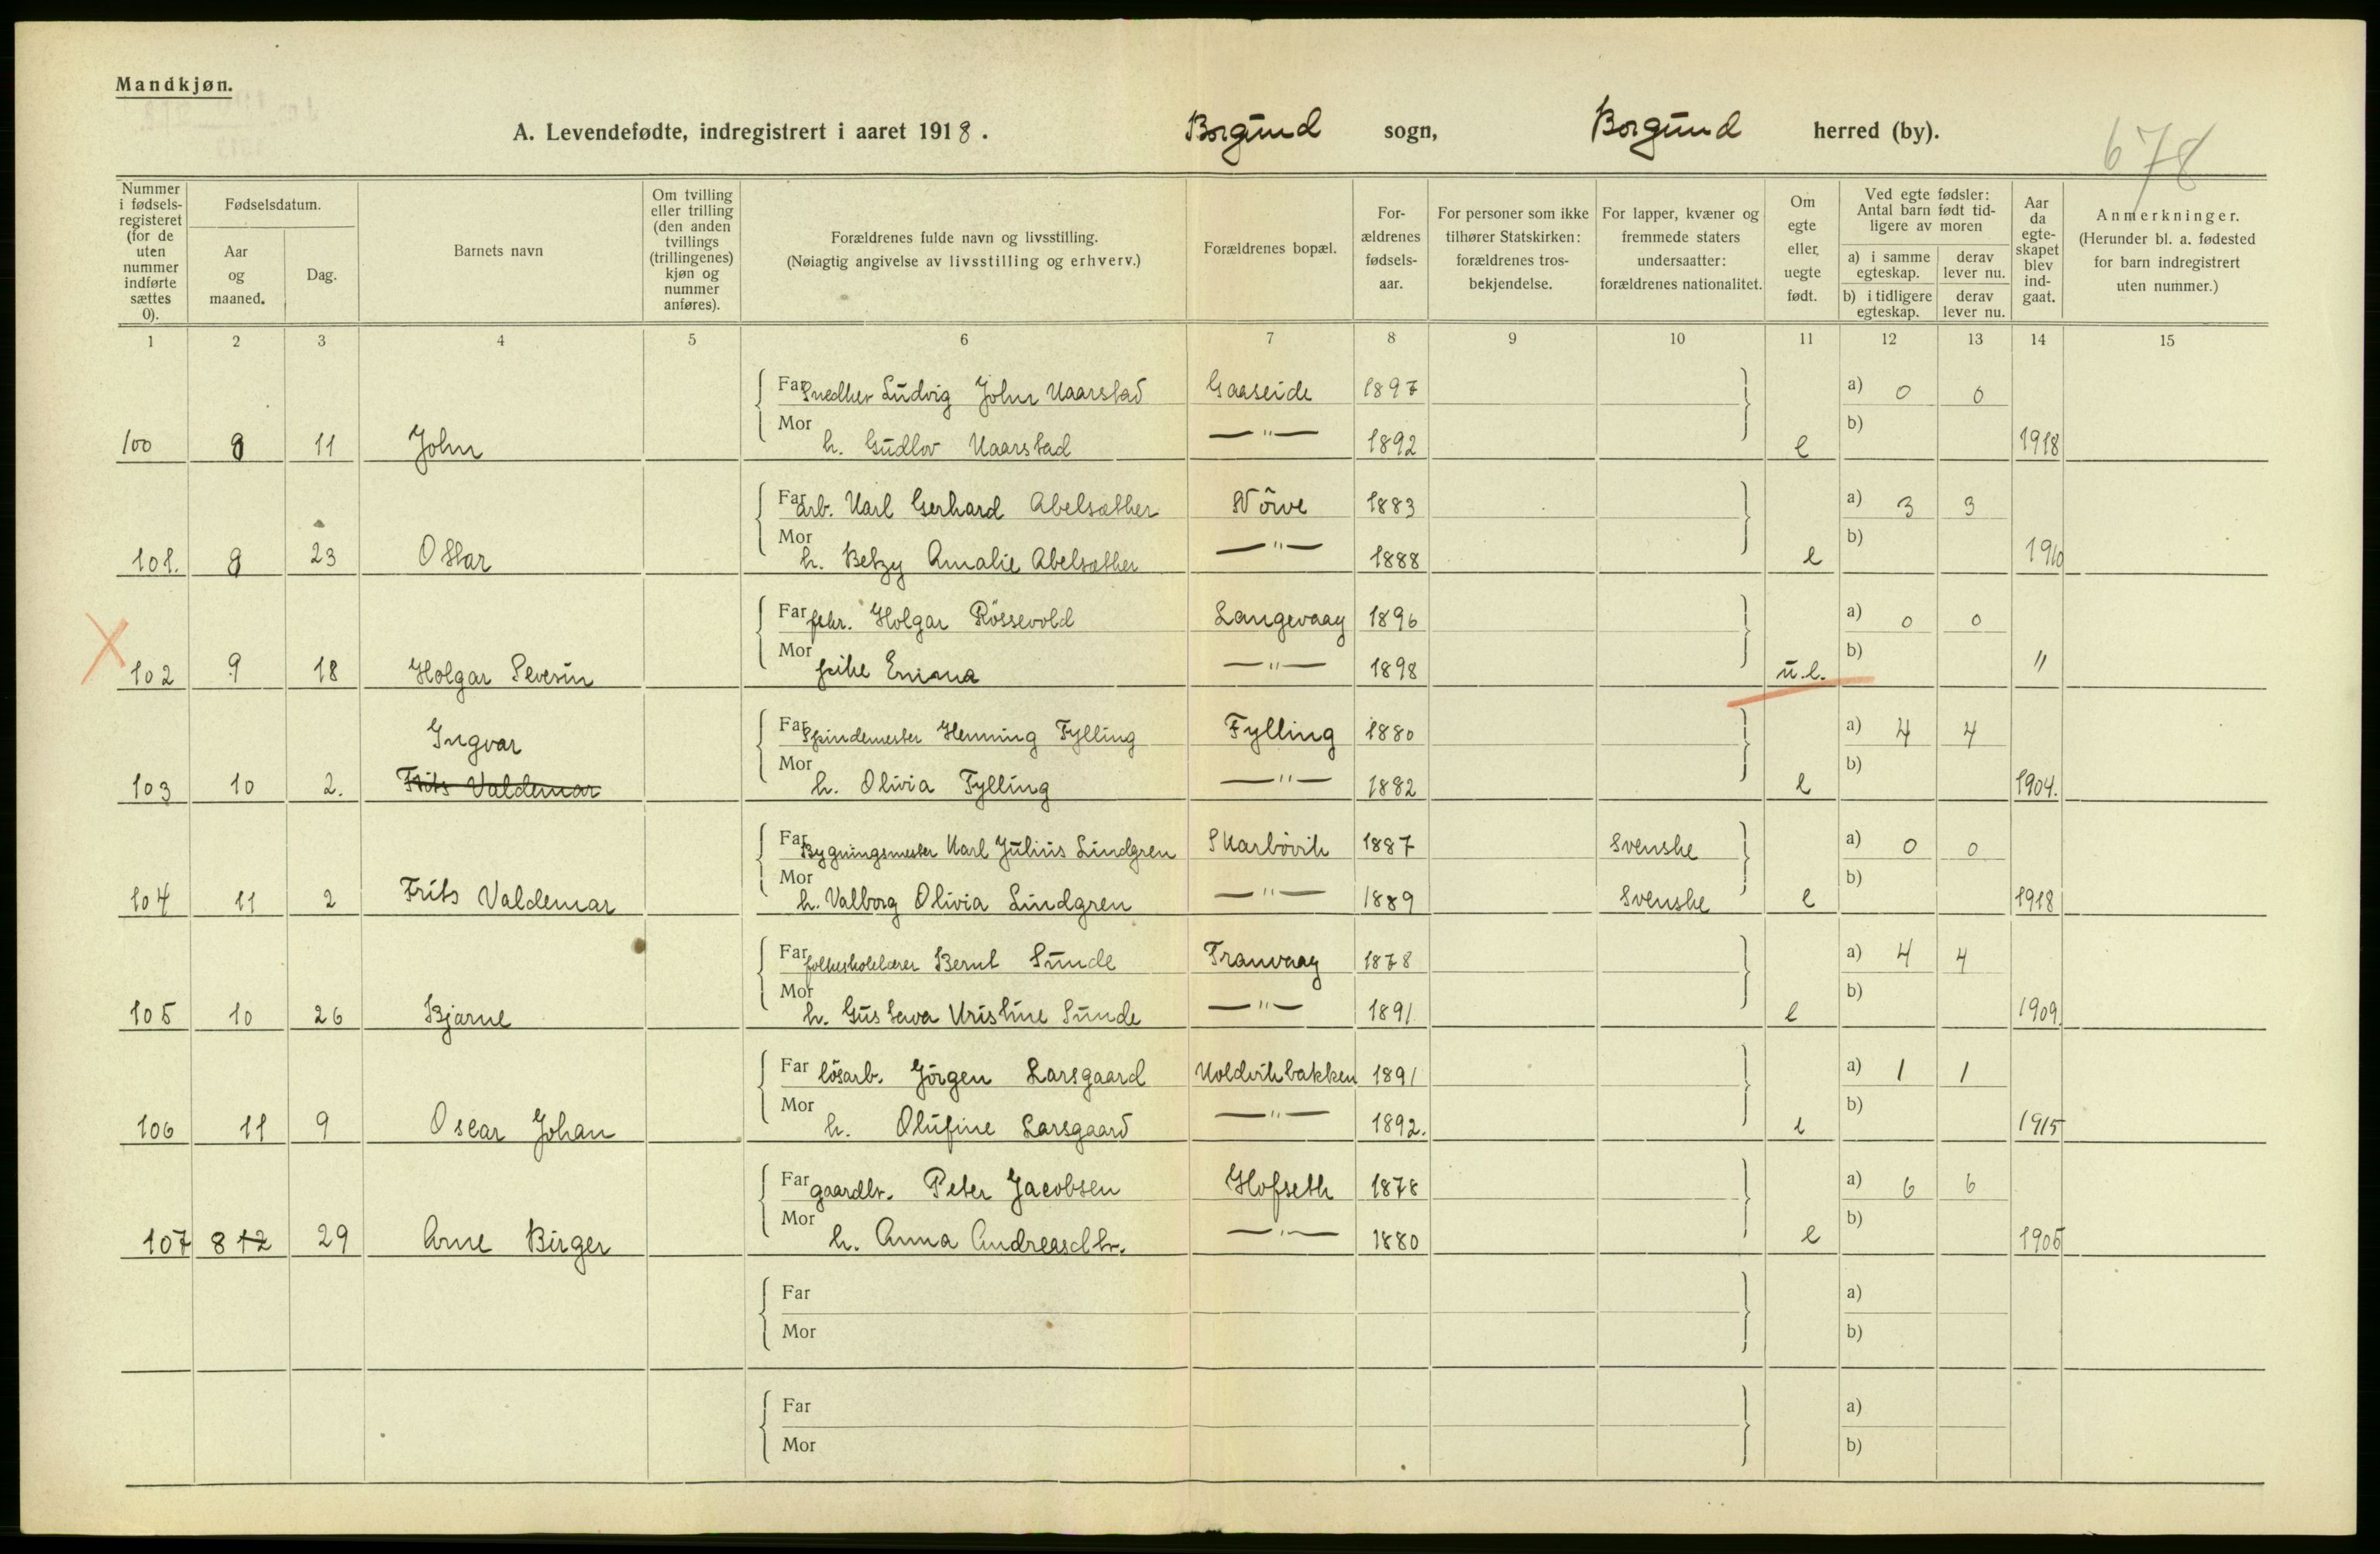 Mandkjøn.
A. Levendefødte, indregistrert i aaret 1918. Borgund sogn, Borgund herred (by).
678
Nummer i fødsels-registeret (for de uten nummer indførte sættes 0).
Fødselsdatum.
Aar og maaned.
Dag.
Barnets navn
Om tvilling eller trilling (den anden tvillings (trillingenes) kjøn og nummer anføres).
Forældrenes fulde navn og livsstilling.
(Nøiagtig angivelse av livsstilling og erhverv.)
Forældrenes bopæl.
For-ældrenes fødsels-aar.
For personer som ikke tilhører Statskirken: forældrenes tros-bekjendelse.
For lapper, kvæner og fremmede staters undersaatter: forældrenes nationalitet.
Om egte eller, uegte født.
Ved egte fødsler: Antal barn født tid-ligere av moren
a) i samme egteskap.
derav lever nu.
b) i tidligere egteskap.
derav lever nu.
Aar da egte-skapet blev ind-gaat.
Anmerkninger.
(Herunder bl. a. fødested for barn indregistrert uten nummer.)
1 2 3 4 5 6 7 8 9 10 11 12 13 14 15
Far Snedker Ludvig John Kaarstad Gaaseide 1897 a) 0 0
Mor h. Gudlov Kaarstad —"— 1892 b)
100 9 11 John e 1918
Far arb. Karl Gerhard Abelsæther Nörve 1883 a) 3 3
Mor h. Betzy Amalie Abelsæther —"— 1888 b)
101. 9 23 Ottar e 1910
Far fskr. Holgar Rössevold Langevaag 1896 a) 0 0
Mor pike Emma —"— 1898 b)
X 102 9 18 Holgar Severin u.e. "
Far Spindemester Henning Fylling Fylling 1880 a) 4 4
Ingvar
Mor h. Olivia Fylling —"— 1882 b)
103 10 2. Frits Valdemar e 1904.
Far Bygningsmester Karl Julius Lindgren Skarbövik 1887 Svenske a) 0 0
Mor h. Valborg Olivia Lindgren —"— 1889 Svenske b)
104 11 2 Frits Valdemar e 1918
Far folkeskolelærer Bernt Sunde Tranvaag 1878 a) 4 4
Mor h. Gustava Kristine Sunde —"— 1891 b)
105 10 26 Bjarne e 1909.
Far lösarb. Jörgen Larsgaard Koldvikbakken 1891 a) 1 1
Mor h. Olufine Larsgaard —"— 1892. b)
106 11 9 Oscar Johan e 1915
Far gaardbr. Peter Jacobsen Hofseth 1878 a) 6 6
Mor h. Anna Andreasdtr. —"— 1880 b)
107 8 12 29 Arne Birger e 1905
Far a)
Mor b)
Far a)
Mor b)